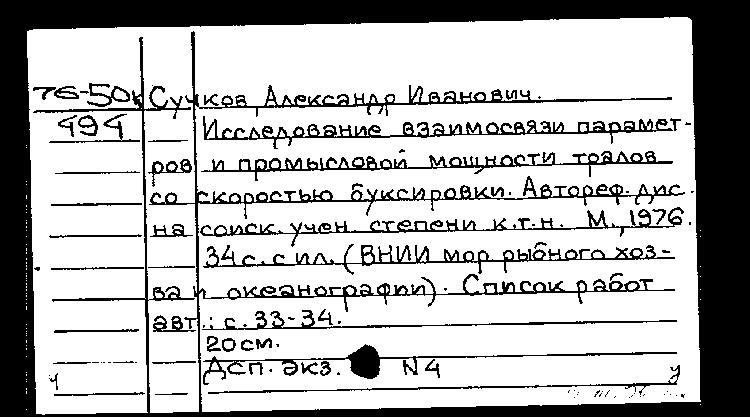 76-50к Сучков, Александр Иванович.
494 Исследование взаимосвязи парамет-
ров и промысловой мощности тралов
со скоростью буксировки. Автореф. дис.
на соиск. учен. степени к.т.н. М., 1976.
34 с. с ил. (ВНИИ мор рыбного хоз-
ва и океанографии). Список работ
авт.: с. 33-34.
20 см.
Дсп. экз. N4
ч у